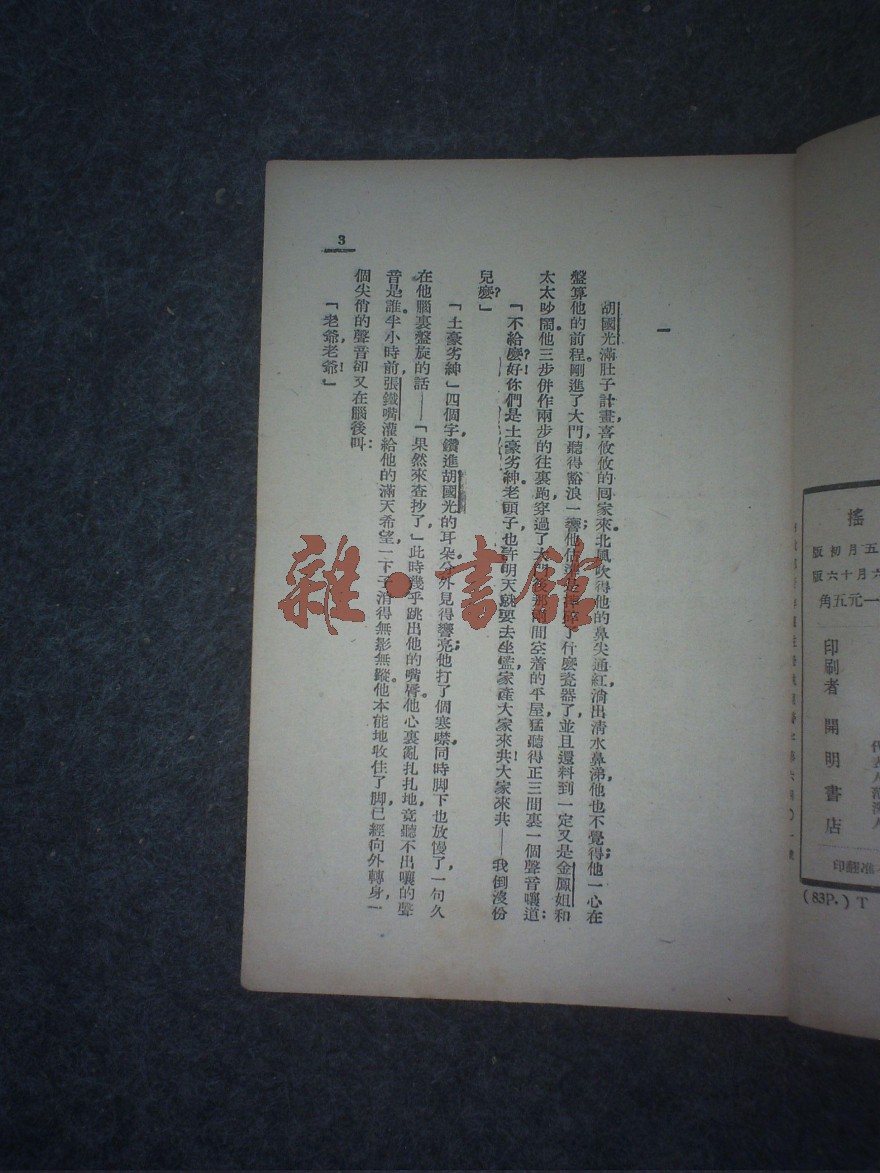 搖
五月初版
六月十六版
一元五角
印刷者 開明書店
准翻印
(83P.) T
一
胡國光滿肚子計畫，喜攸攸的回家來。北風吹得他的鼻尖通紅，淌出清水鼻涕，他也不覺得；他一心在
盤算他的前程。剛進了大門，聽得豁浪一響；他估量是摔碎了什麼瓷器了，並且還料到一定又是金鳳姐和
太太吵鬧。他三步併作兩步的往裏跑，穿過了大門後那兩間空着的平屋，猛聽得正三間裏一個聲音嚷道：
「不給麼？好！你們是土豪劣紳。老頭子也許明天就要去坐監，家產大家來共！大家來共——我倒沒份
兒麼？」
「土豪劣紳」四個字鑽進胡國光的耳朵，分外見得響亮；他打了個寒噤，同時脚下也放慢了，一句久
在他腦裏盤旋的話——「果然來查抄了，」此時幾乎跳出他的嘴脣。他心裏亂扎扎地，竟聽不出嚷的聲
音是誰。半小時前，張鐵嘴灌給他的滿天希望，一下子消得無影無蹤。他本能地收住了脚，已經向外轉身，一
個尖俏的聲音卻又在腦後叫：
「老爺，老爺！」
3
雜·書館